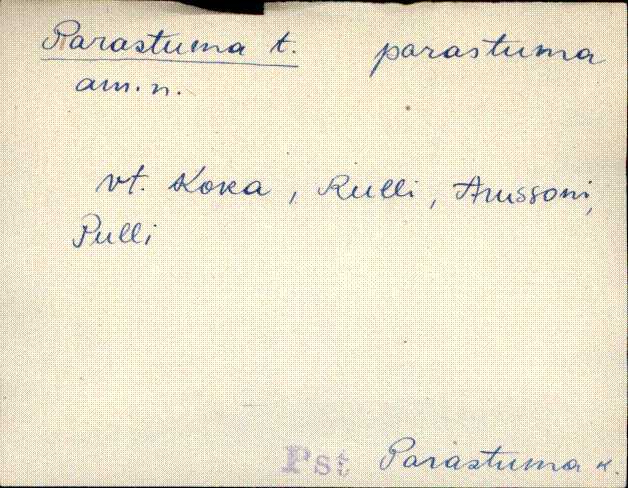 Parastuma t. parastuma
am.n.
vt. Koka, Rulli, Arussoni,
Pulli
Pst Parastuma k.